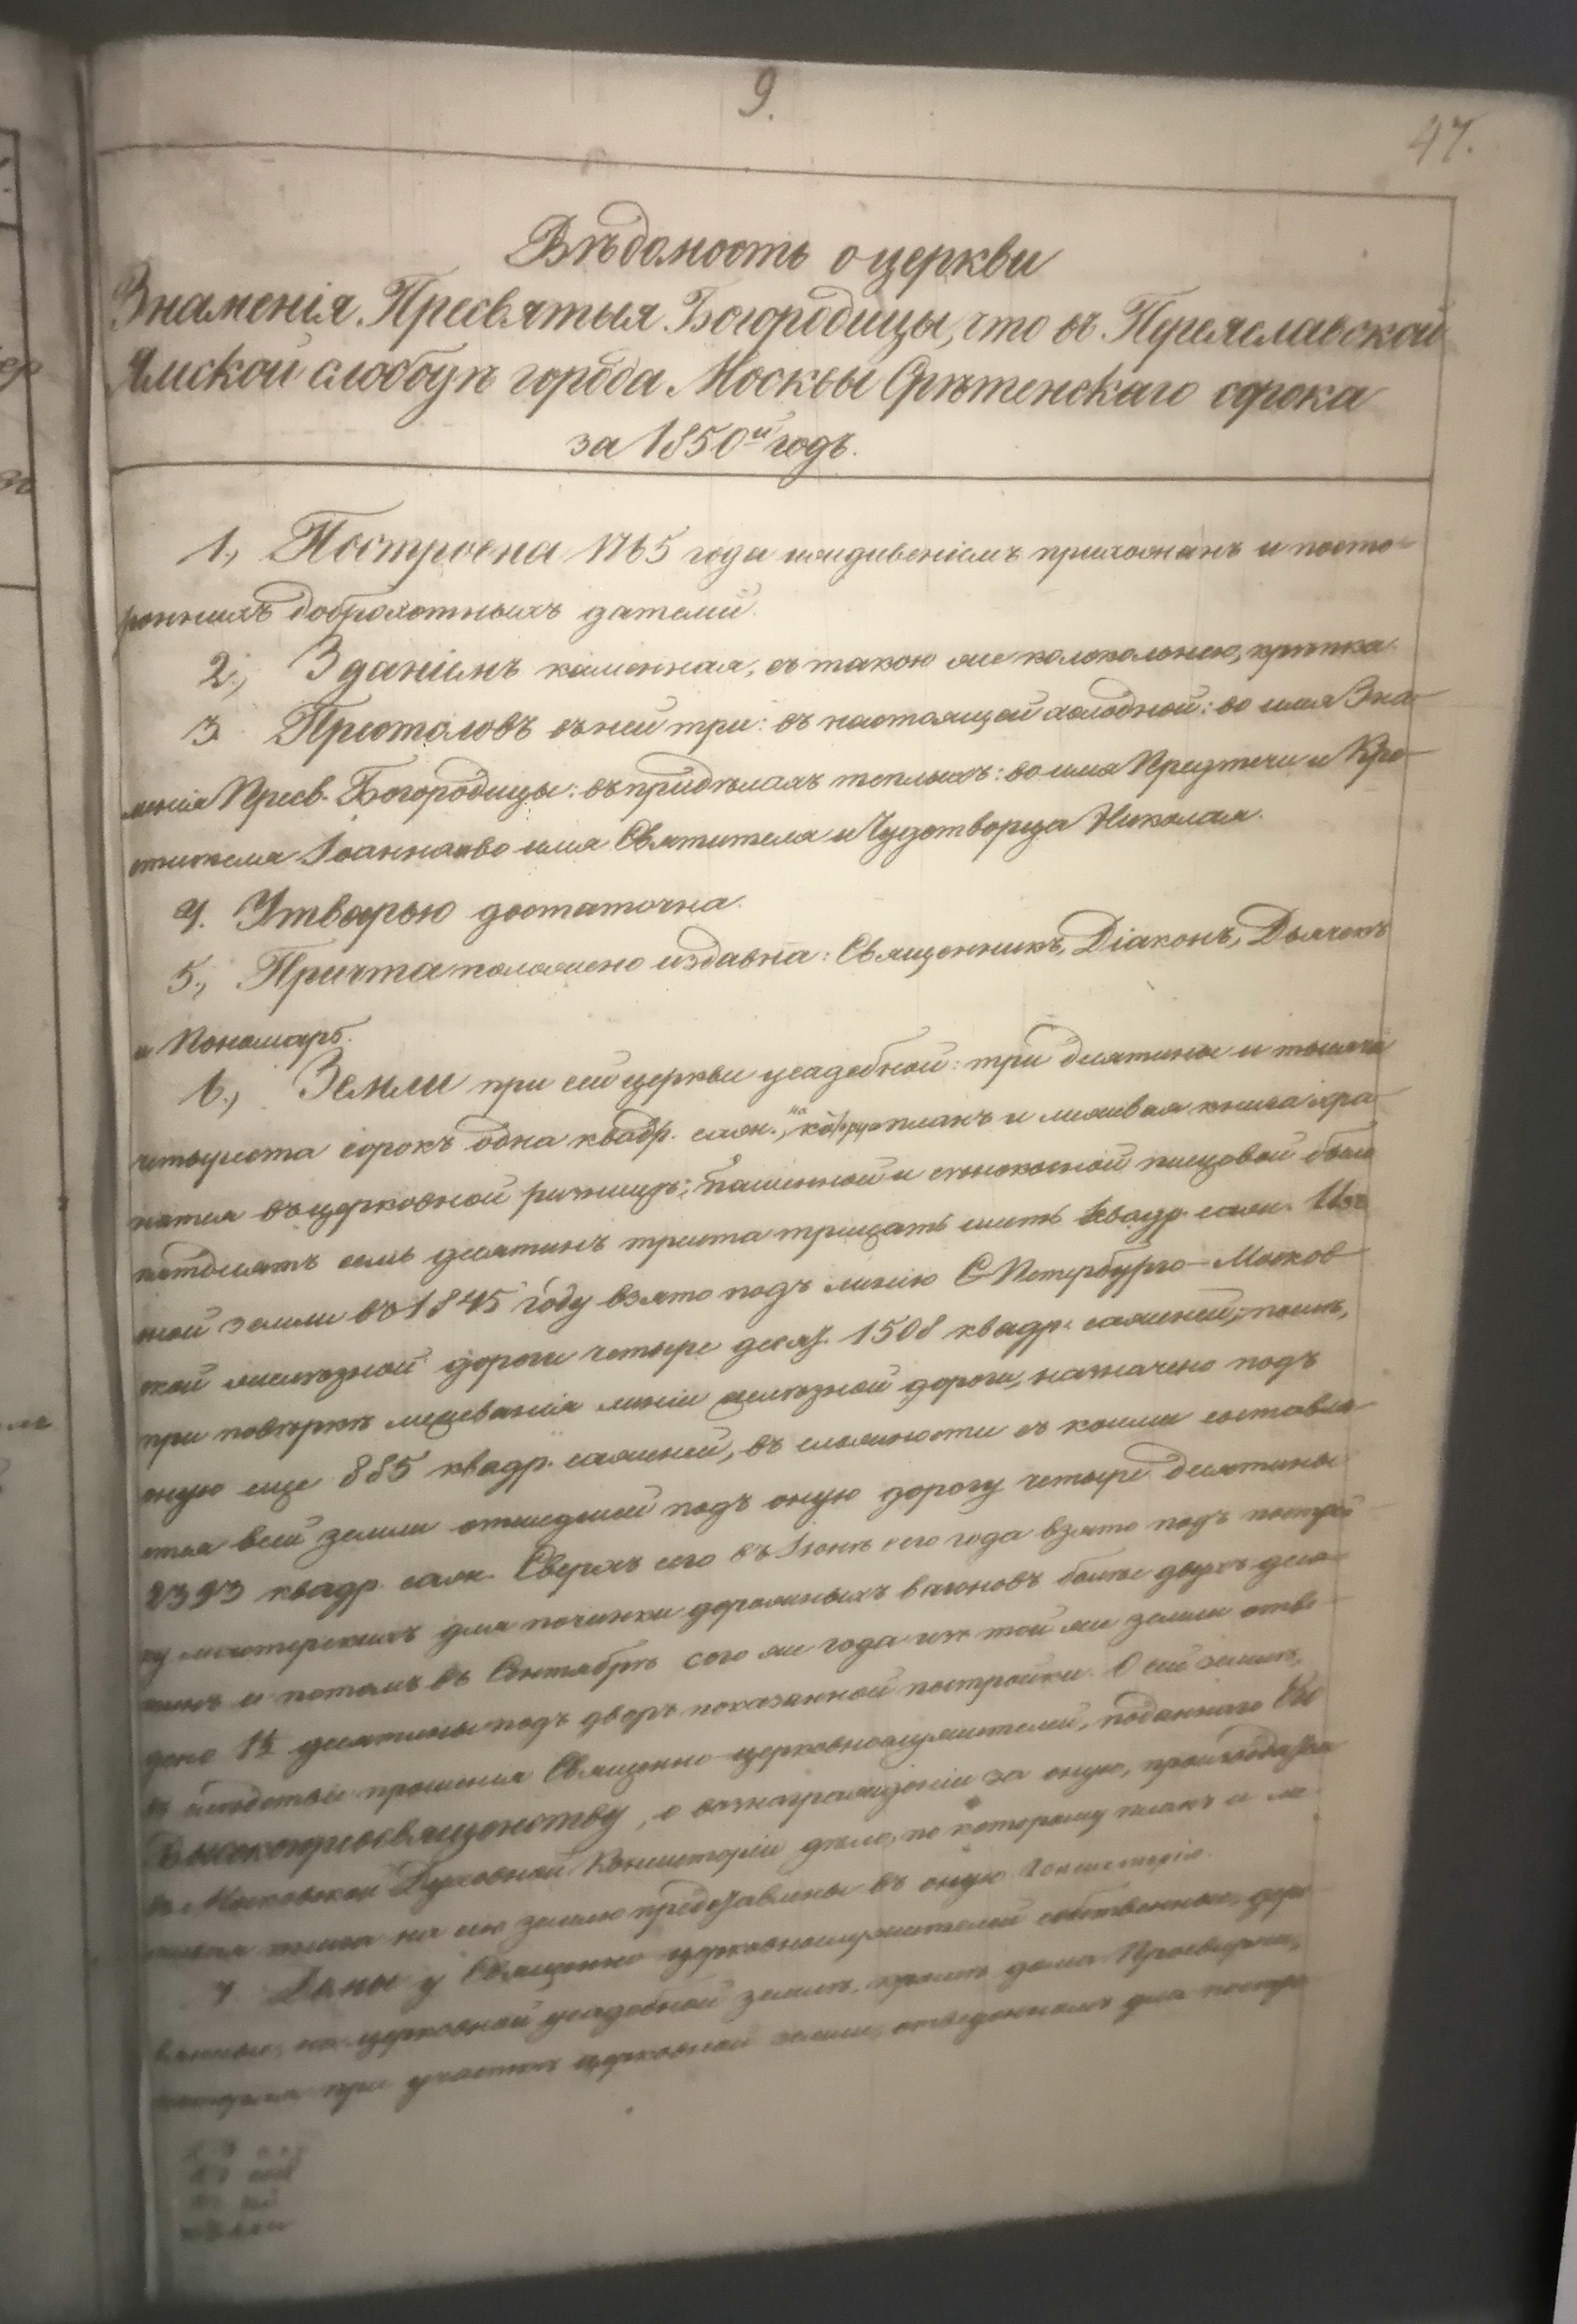 9.
47.
Вѣдомость о церкви
Знаменія Пресвятыя Богородицы, что въ Переяславской
Ямской слободѣ города Москвы Срѣтенскаго сорока
за 1850й годъ.
1., Построена 1765 года иждивеніемъ прихожанъ и посто-
роннихъ доброхотныхъ дателей.
2., Зданіемъ каменная, съ такою же колокольнею, крѣпка.
3. Престоловъ въ ней три: въ настоящей холодной: во имя Зна-
менія Пресв. Богородицы: въ придѣлахъ теплыхъ: во имя Предтечи и Кре-
стителя Іоанна и во имя Святителя и Чудотворца Николая.
4. Утварью достаточна.
5., Причта положено издавна: Священникъ, Діаконъ, Дьячекъ
и Пономарь.
6., Земли при сей церкви усадебной: три десятины и тысяча
четыреста сорокъ одна квадр. саж., на которую планъ и межевая книга хра-
нятся въ церковной ризницѣ; пашенной и сѣнокосной писцовой было
пятьдесятъ семь десятинъ триста тридцать шесть квадр. саж. Изъ
оной земли въ 1845 году взято подъ линію С-Петербурго-Москов-
ской желѣзной дороги четыре десят. 1508 квадр. саженей; послѣ,
при повѣркѣ межеванія линіи желѣзной дороги, назначено подъ
оную еще 885 квадр. саженей, въ сложности съ коими составля-
ется всей земли отшедшей подъ оную дорогу четыре десятины
2393 квадр. саж. Сверхъ сего въ Іюнѣ сего года взято подъ построй-
ку мастерскихъ для починки дорожныхъ вагоновъ болѣе двухъ деся-
тинъ и потомъ въ Сентябрѣ сего же года изъ той же земли отве-
дено 1½ десятины подъ дворъ показанной постройки. О сей землѣ,
въ слѣдствіе прошенія Священно-церковнослужителей, поданнаго Его
Высокопреосвященству, о вознагражденіи за оную, производится
въ Московской Духовной Консисторіи дѣло, по которому планъ и ме-
жевая книга на сію землю представлены въ оную Консисторію.
7. Домы у Священно-церковнослужителей собственные, дере-
вянные, на церковной усадебной землѣ, кромѣ дома Просвирни,
при участкѣ церковной земли, отведенномъ для постро-